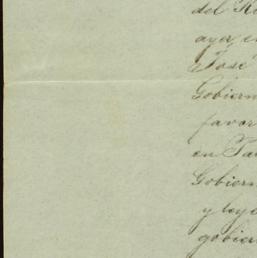 del R
ayer e
José
Gobiern
favor
en Ta
Gobiern
y leye
gobier